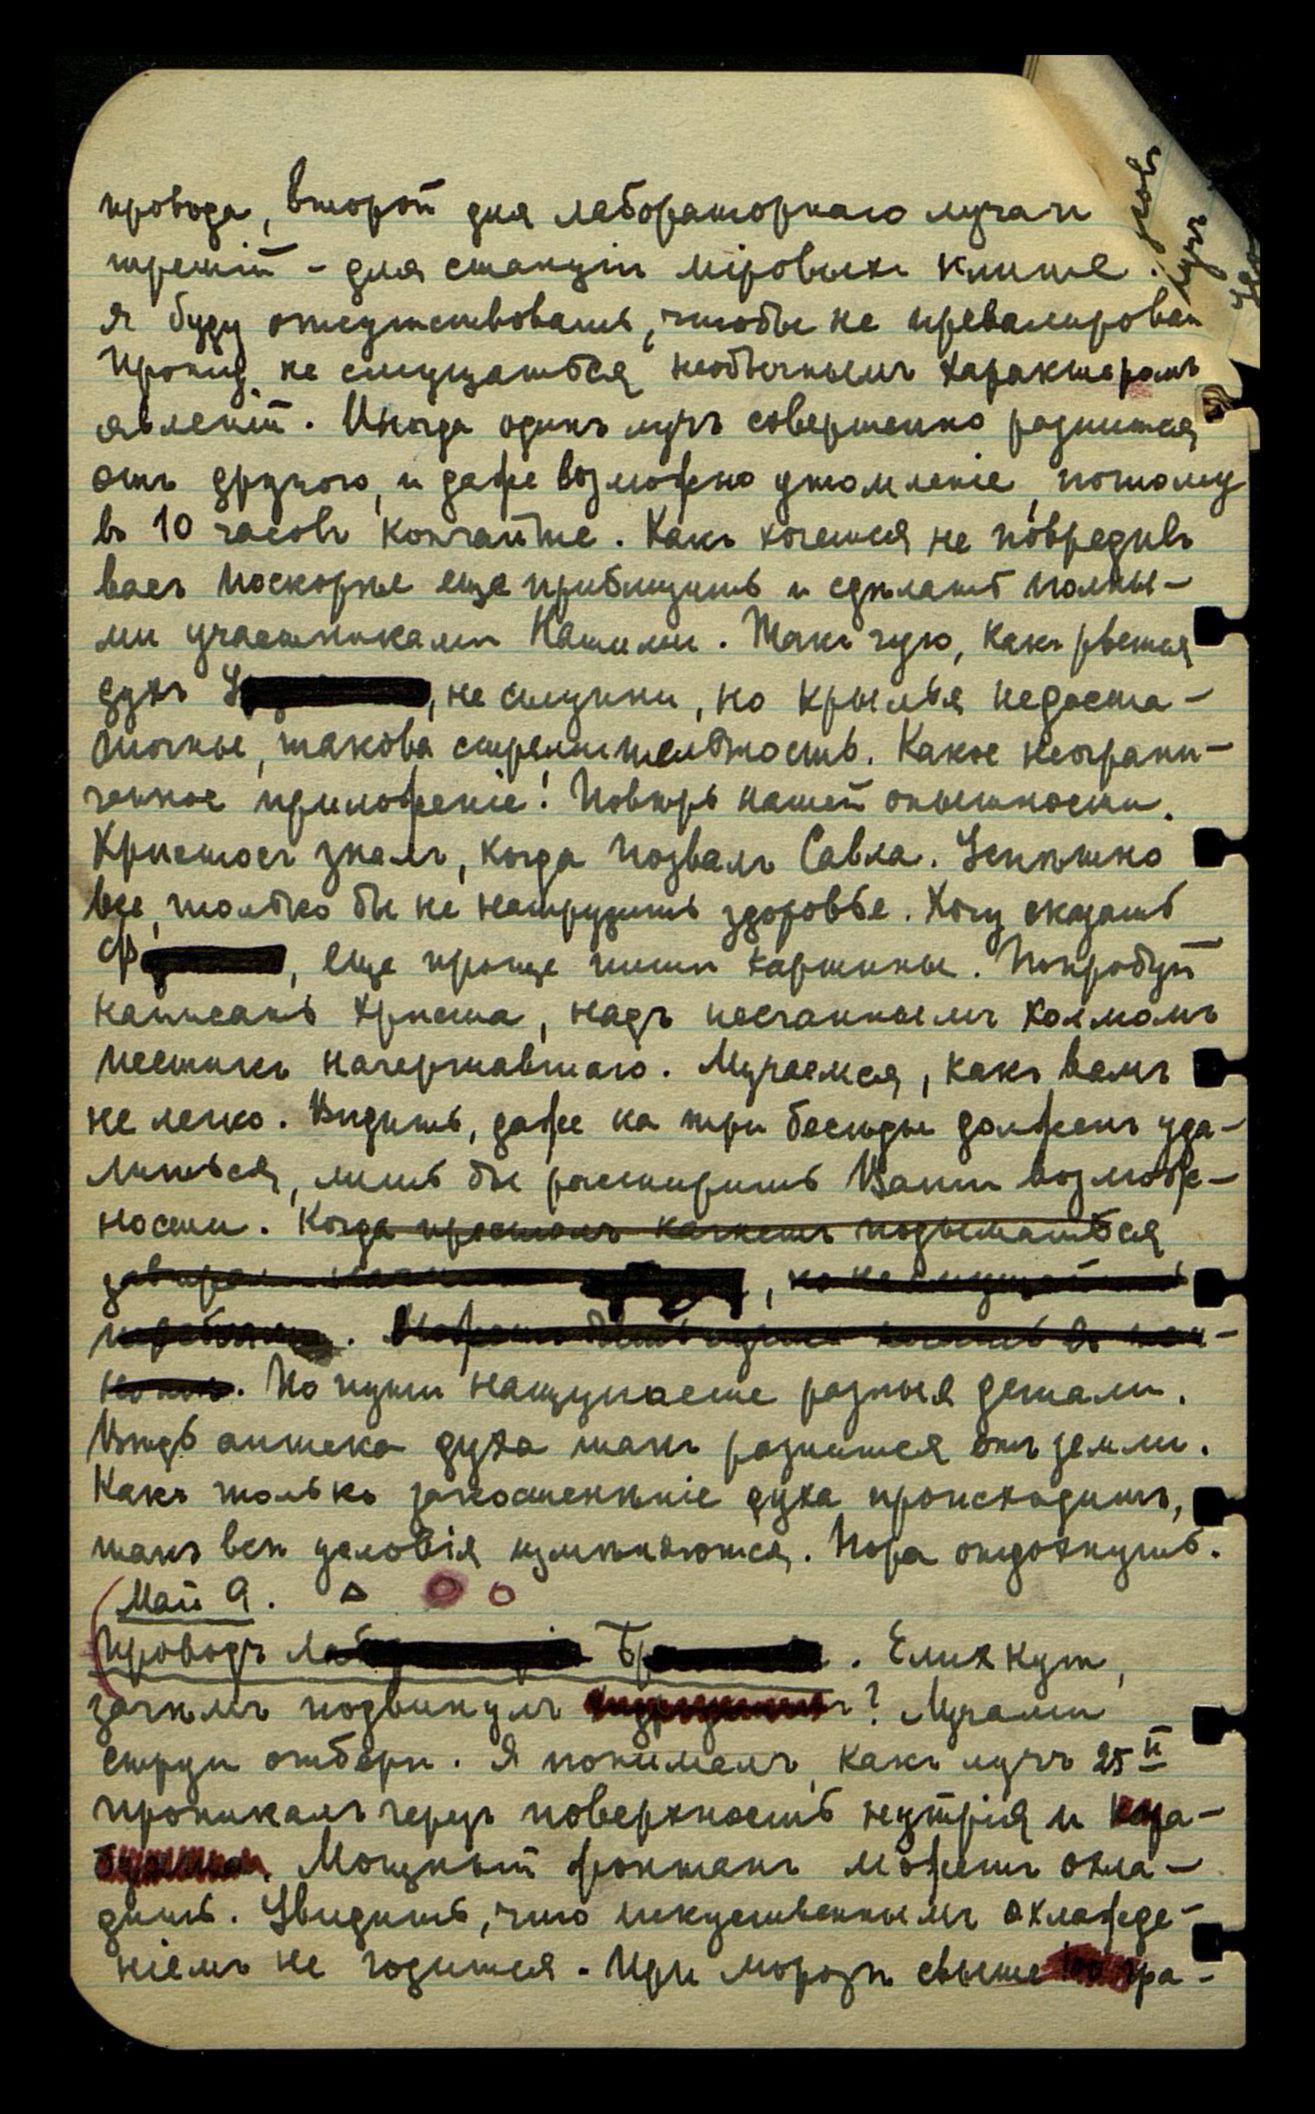 провода, второй для лабораторнаго луча и
третій - для станціи міровыхъ клише.
Я буду отсутствовать, чтобы не превалировать
Прошу не смущаться необычнымъ характеромъ
явленій. Иногда одинъ лучъ совершенно разнится
отъ другого, и даже возможно утомленіе, потому
въ 10 часовъ кончайте. Какъ хочется не повредивъ
васъ поскорѣе еще приблизить и сдѣлать полны-
ми участниками Нашими. Такъ чую, какъ рвется
духъ У, не слушки, но крылья недоста-
точные, такова стремительность. Какое неограни-
ченное приложеніе! Повѣрь нашей опытности.
Христосъ зналъ, когда позвалъ Савла. Успѣшно
все, только бы не натрудить здоровье. Хочу сказать
Ф, еще проще пиши картины. Попробуй
написать Христа, надъ песчаннымъ холмомъ
пестикъ начертавшаго. Мучаемся, какъ вамъ
не легко. Видишь, даже на три бесѣды долженъ уда-
литься, лишь бы расширить Ваши возмож-
ности. Когда престолъ качнетъ подыматься
По пути нащупаете разныя детали.
Вѣдь аптека духа такъ разнится отъ земли.
Какъ только закостенѣніе духа происходитъ,
такъ всѣ условія измѣняются. Пора отдохнуть.
Май 9.
Проводъ Лаб Бр. Елихкут,
зачѣмъ подвинулъ ? Лучами
струи отбери. Я понималъ, какъ лучъ 25 II
проникалъ черезъ поверхность нутрія и
Мощный фонтанъ можетъ охла-
дить. Увидишь, что искуственнымъ охлажде-
ніемъ не годится. При морозѣ свыше 100 гра-